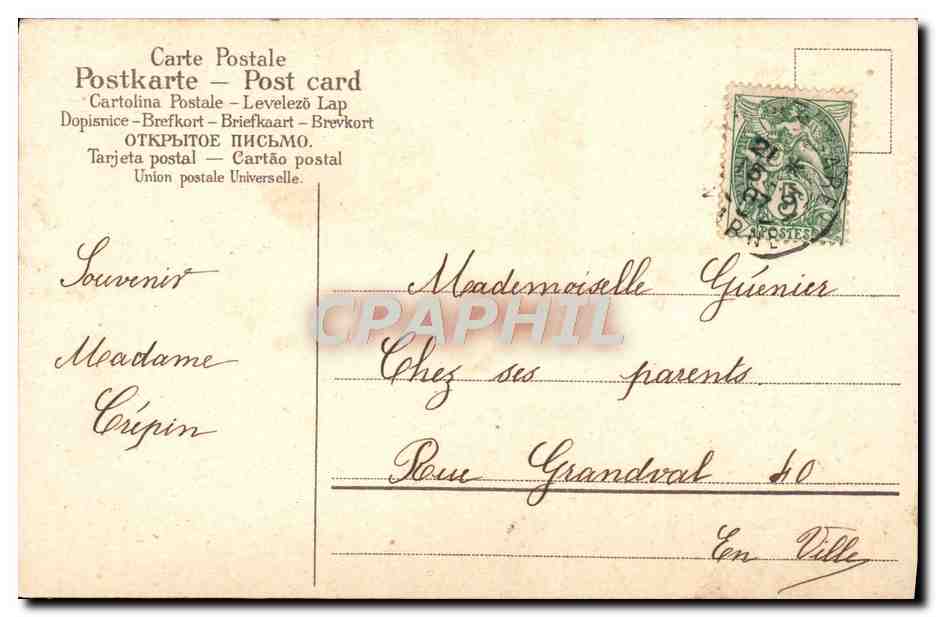 Carte Postale
Postkarte — Post card
Cartolina Postale – Levelezö Lap
Dopisnice – Brefkort – Briefkaart – Brevkort
ОТКРЫТОЕ ПИСЬМО.
Tarjeta postal — Cartão postal
Union postale Universelle.
Souvenir
Madame
Crépin
Mademoiselle Guénier
Chez ses parents.
Rue Grandval 40
En Ville
21
07
5
POSTES
CPAPHIL